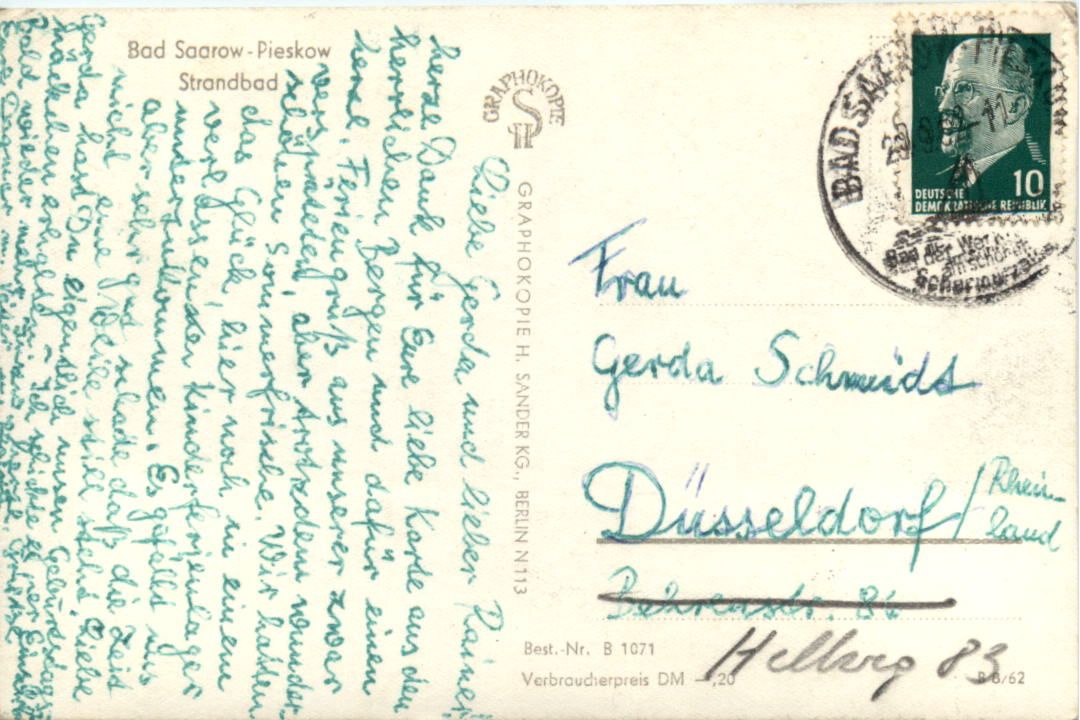 Bad Saarow-Pieskow
Strandbad
GRAPHOKOPIE
H S
GRAPHOKOPIE H. SANDER KG., BERLIN N 113
Liebe Gerda und lieber Rainer!
herzl. Dank für Eure liebe Karte aus den
herrlichen Bergen und dafür einen
herzl. Feriengruß aus unserer zwar
verspäteten, aber trotzdem wunder-
schönen Sommerfrische. Wir hatten
das Glück hier noch in einem
verlassenen Kinderferienlager
unterzukommen. Es gefällt uns
aber sehr gut schade daß die Zeit
nicht eine Weile still steht. Liebe
Gerda hast Du eigentlich unser Geburtstags-
päckchen erhalten? Ich schickte es per
Bald wieder mehr
BAD SAAROW-PIESKOW
11
DEUTSCHE
DEMOKRATISCHE REPUBLIK
10
Frau
Gerda Schmidt
Düsseldorf / Rhein-
land
Behrenstr. 86
Hellweg 83
Best.-Nr. B 1071
Verbraucherpreis DM –,20
B 8/62